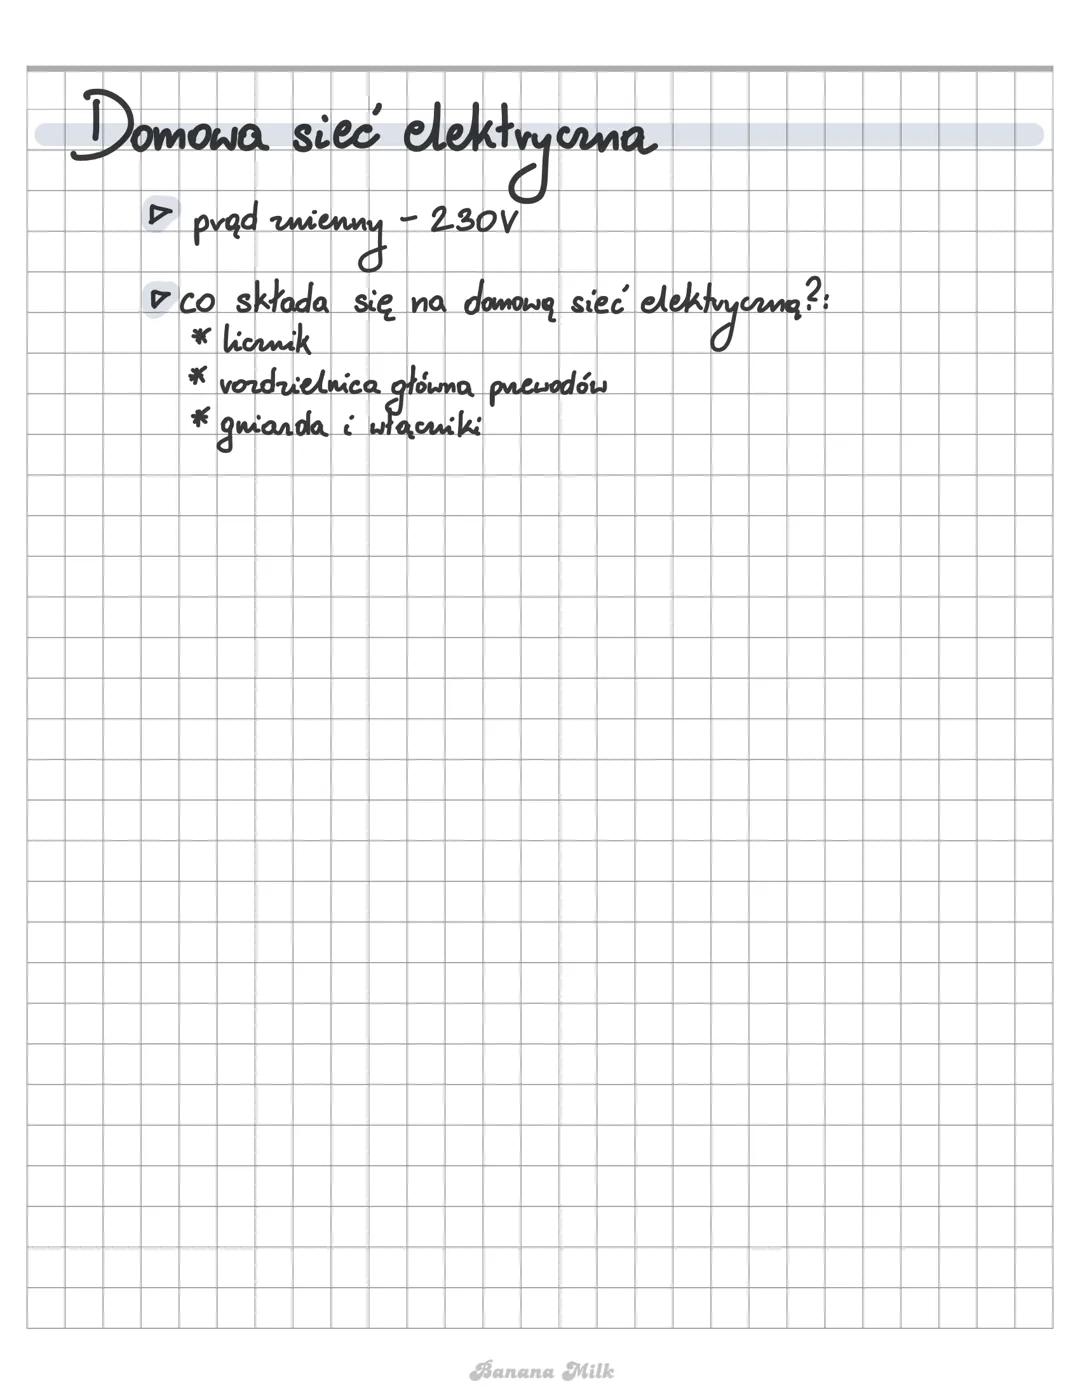 Domowa sieć elektryczna
▷ prąd zmienny - 230V
▷ co składa się na domową sieć elektryczną?:
* licznik
* rozdzielnica główna przewodów
* gniazda i włączniki
Banana Milk